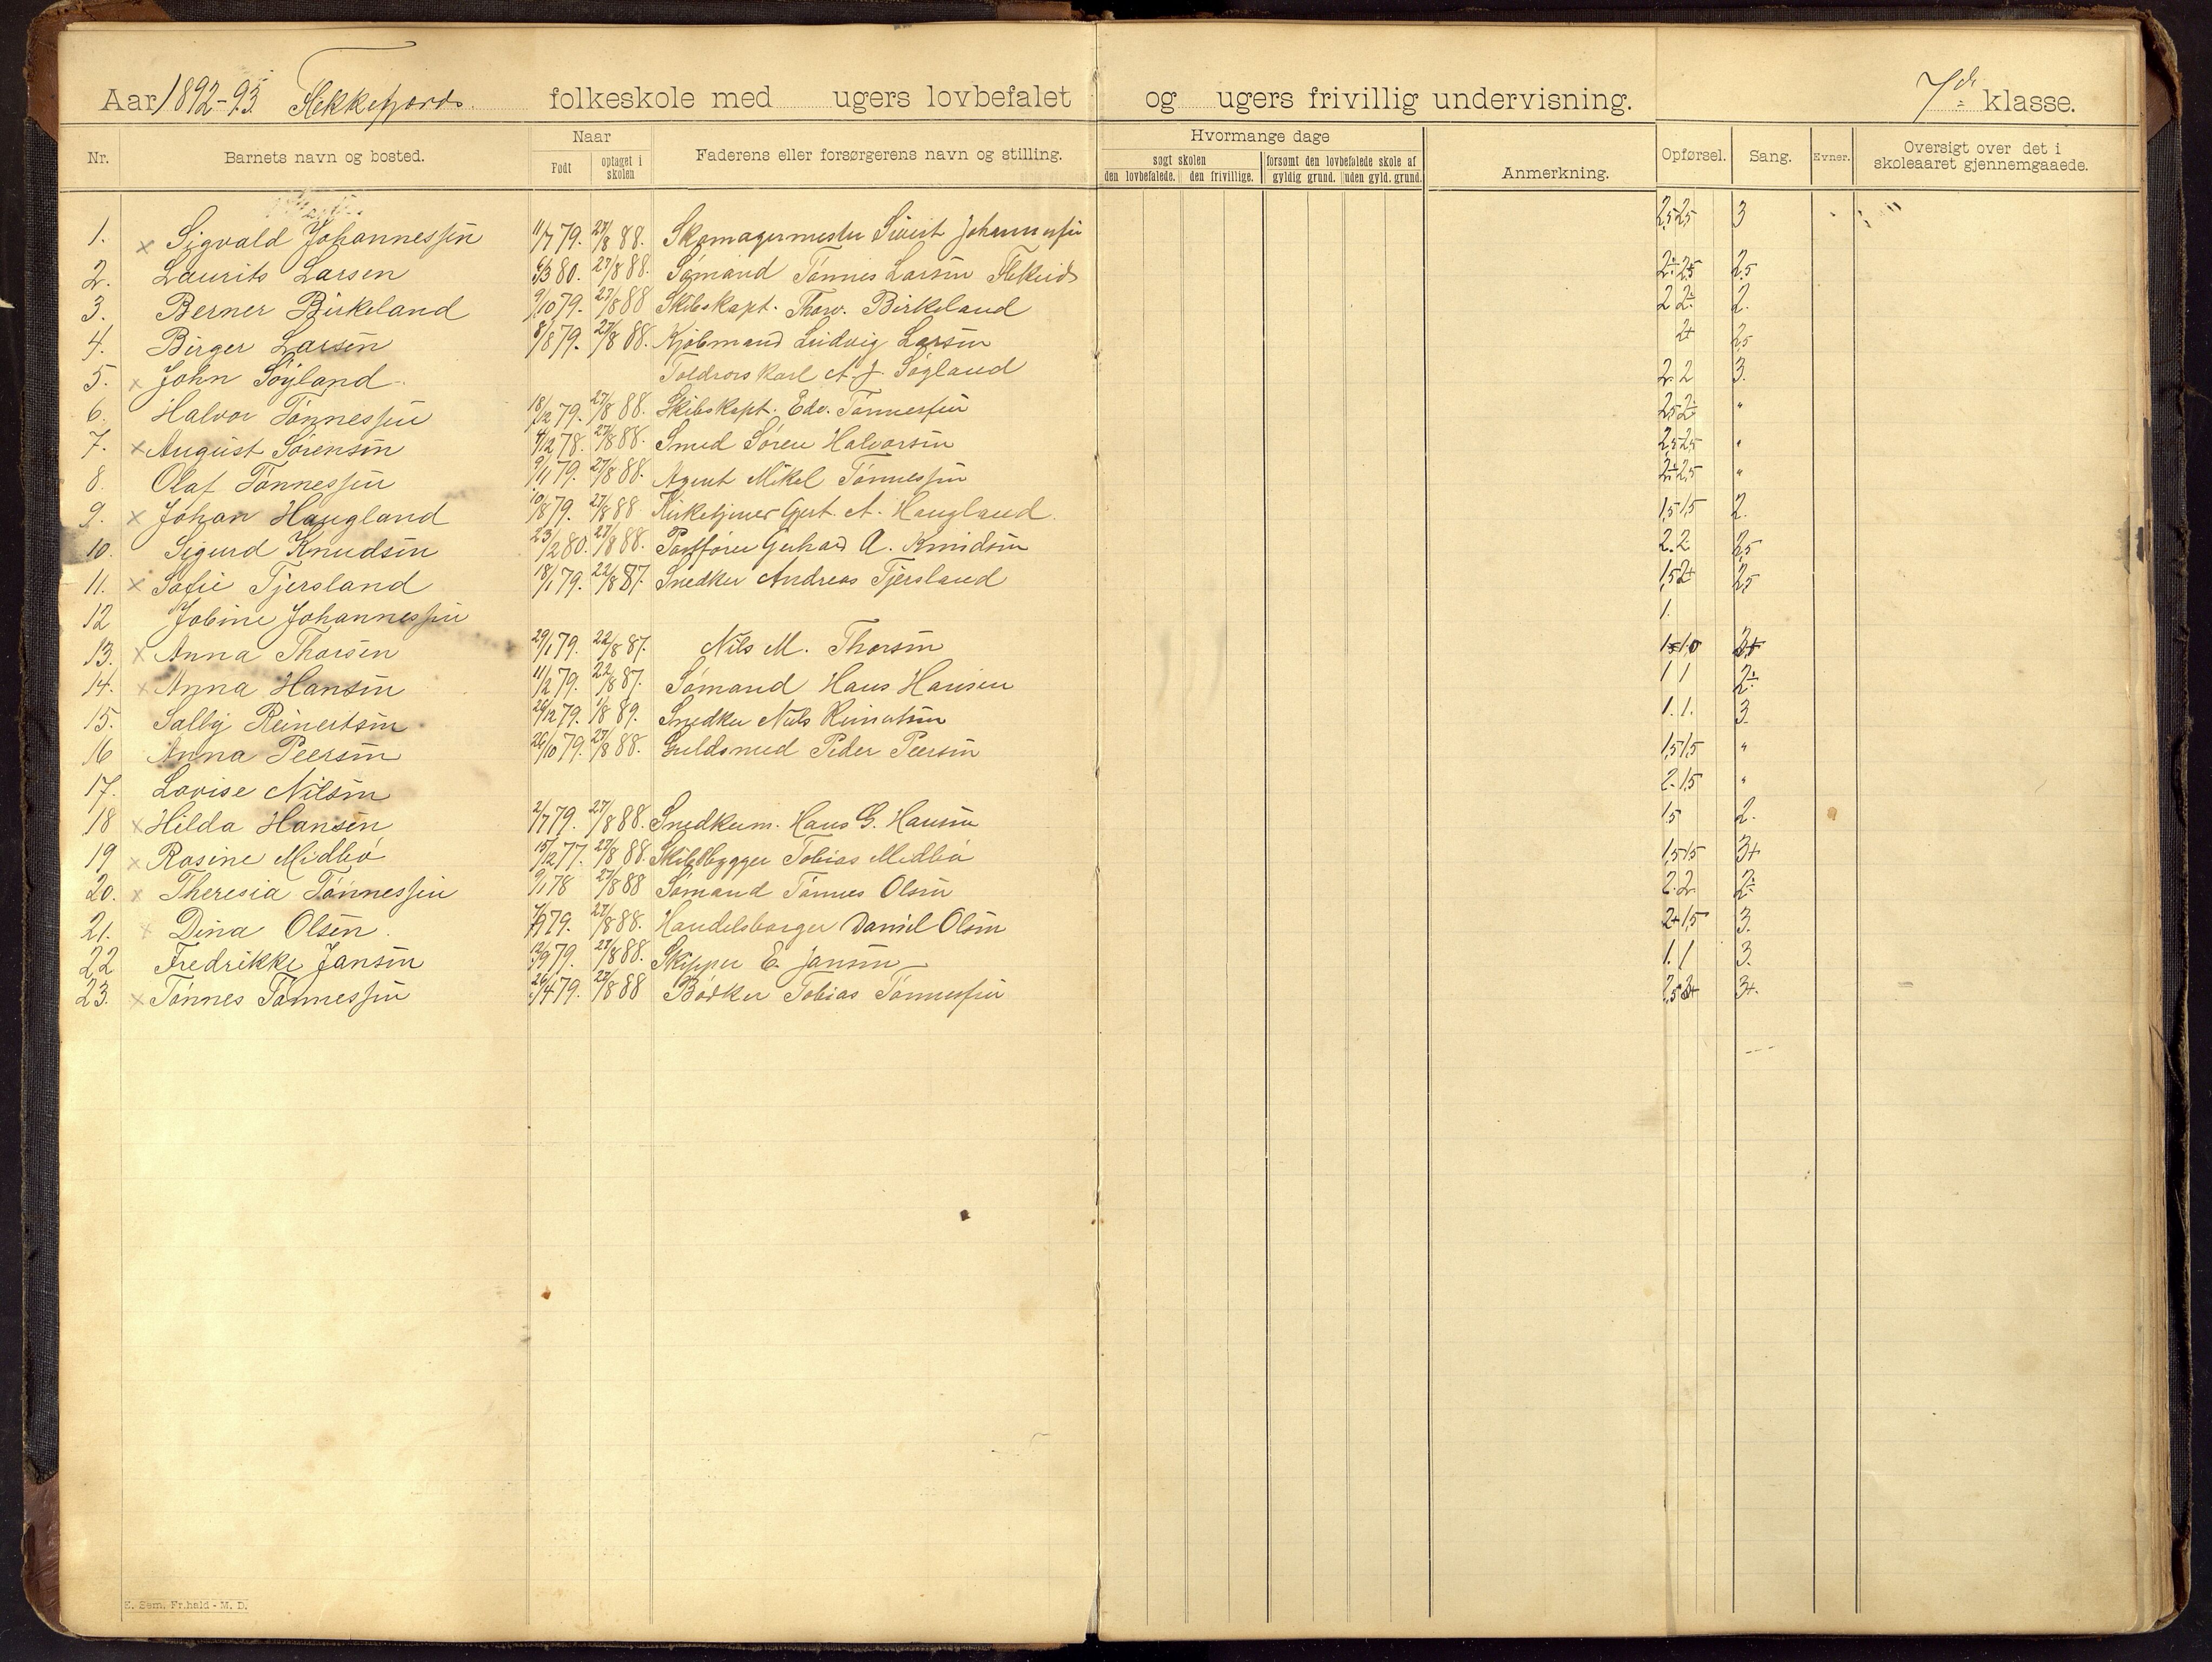 Aar 1892-93 Flekkefjords folkeskole med ugers lovbefalet og ugers frivillig undervisning. 7de klasse.
Nr. Barnets navn og bosted. Naar Født optaget i skolen Faderens eller forsørgerens navn og stilling. Hvormange dage søgt skolen den lovbefalede. den frivillige. forsømt den lovbefalede skole af gyldig grund. uden gyld. grund. Anmerkning. Opførsel. Sang. Evner. Oversigt over det i skoleaaret gjennemgaaede.
1. × Sigvald Johannessen 11/7 79. 27/8 88. Skomagermester Sivert Johannessen 2,5 2,5 3
2. Laurits Larsen 6/3 80. 27/8 88. Sømand Tønnes Larsen 2÷ 2,5 2,5
3. Berner Birkeland 9/10 79. 27/8 88 Skibskapt. Thorv. Birkeland 2 2÷ 2.
4. Birger Larsen 8/8 79. 27/8 88. Kjøbmand Ludvig Larsen 2+ 2,5
5. × John Søyland Toldrorskarl A. J. Søgland 2. 2 3.
6. Halvor Tønnessen 18/12 79. 27/8 88. Skibskapt. Edv. Tønnessen 2,5 2÷ "
7. × August Sørensen 4/12 78. 27/8 88. Smed Søren Halvorsen 2,5 2,5 "
8. Olaf Tønnessen 9/1 79. 27/8 88. Agent Mikel Tønnessen 2÷ 2,5 "
9. × Johan Haugland 10/8 79. 27/8 88. Kirketjener Gjert. A. Haugland. 1,5 1,5 2.
10. Sigurd Knudsen 23/2 80. 27/8 88. Postfører Gerhard A. Knudsen 2. 2 2,5
11. × Sofie Tjersland 18/1 79. 22/8 87. Snedker Andreas Tjersland 1,5 2+ 2,5
12 Jobine Johannessen 1.
13. × Anna Thorsen 29/1 79. 22/8 87. Nils M. Thorsen
14. × Anna Hansen 11/2 79. 22/8 87. Sømand Hans Hansen 1 1 2÷
15. Sally Reinertsen 26/12 79. 1/8 89. Snedker Nils Reinertsen 1. 1. 3.
16 Anna Peersen 26/10 79. 27/8 88. Guldsmed Peder Peersen 1,5 1,5 "
17. Lovise Nilsen 2. 1,5 "
18 × Hilda Hansen 2/7 79. 27/8 88. Snedkerm. Hans G. Hansen 1,5 2.
19 × Rosine Midbø 15/12 77. 27/8 88. Skibsbygger Tobias Midbø 1,5 1,5 3+
20. × Theresia Tønnessen 9/1 78 27/8 88 Sømand Tønnes Olsen 2. 2. 2÷
21. × Dina Olsen. 7/9 79. 27/8 88. Handelsborger Daniel Olsen 2+ 1,5 3.
22 Fredrikke Jansen 12/9 79. 27/8 88. Skipper E. Jansen 1. 1 3.
23. × Tønnes Tønnessen 26/4 79. 27/8 88 Bødker Tobias Tønnessen 2,5 3+.
E. Sem, Fr.hald - M. D.